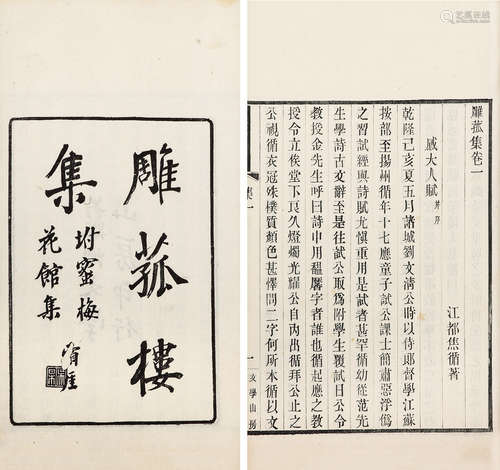 雕菰集卷一
江都焦循著
感大人賦 并序
乾隆己亥夏五月諸城劉文清公時以侍郎督學江蘇
按部至揚州循年十七應童子試公課士簡肅惡浮僞
之習試經與詩賦尤慎重用是試者甚罕循幼從范先
生學詩古文辭至是往試公取爲附學生覆試日公令
教授金先生呼曰詩中用字者誰也循起應之教
授令立俟堂下良久燈燭光耀公自內出循拜公止之
公視循衣冠殊樸質顏色甚懌問二字何所本循以文
集一
一
文學山房
雕菰樓
集
坿蜜梅
花館集